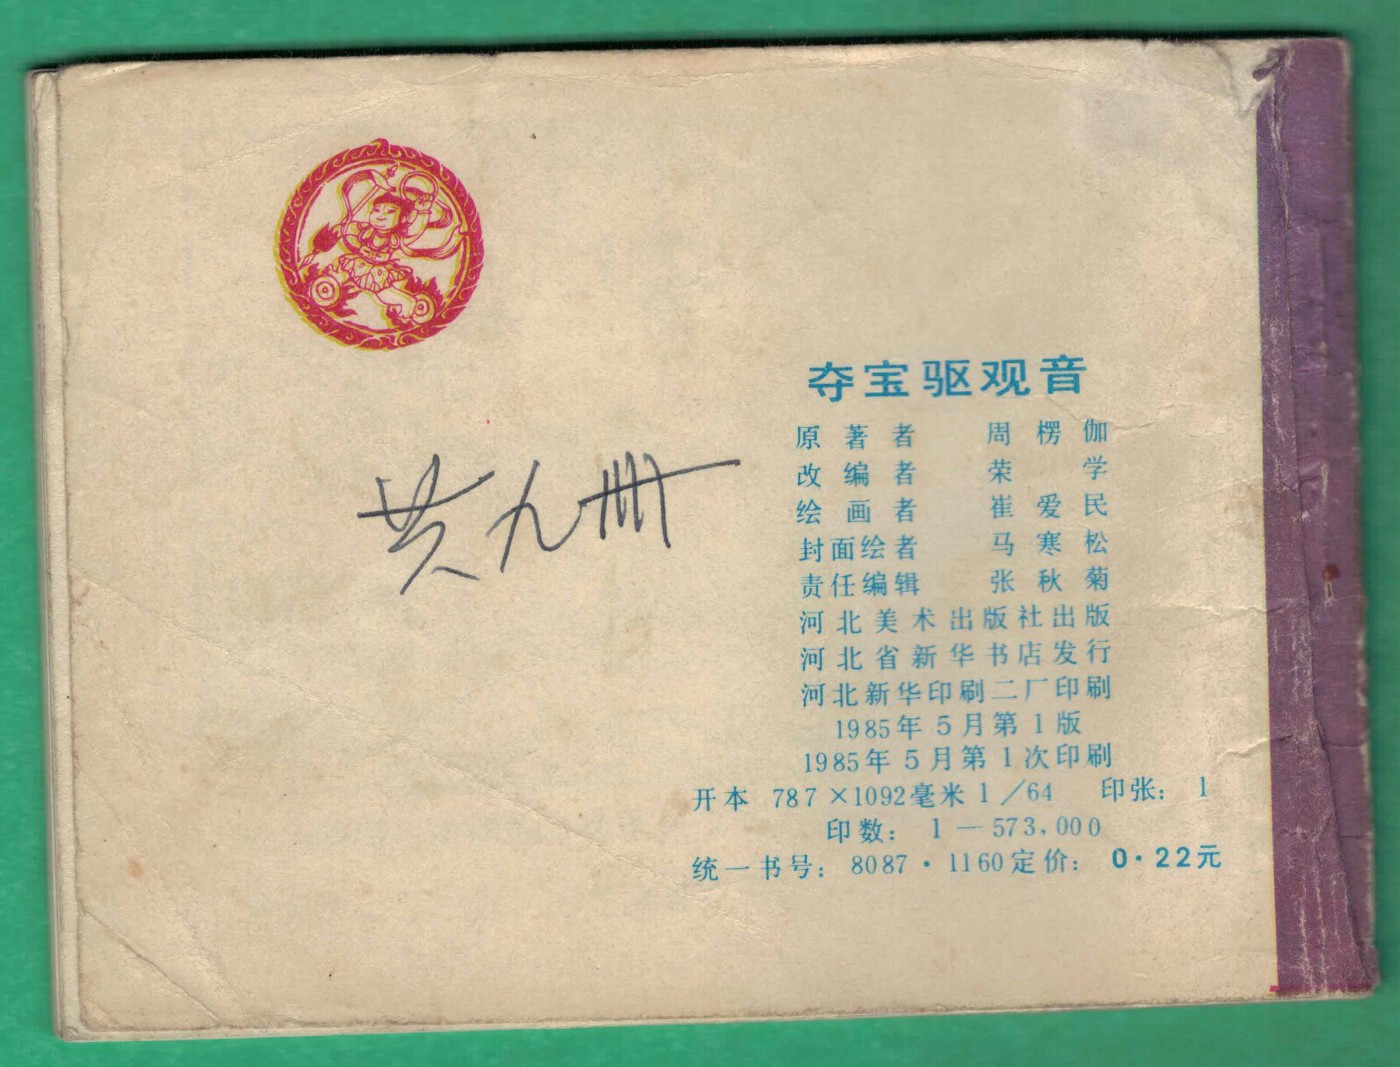 夺宝驱观音
原著者 周楞伽
改编者 荣学
绘画者 崔爱民
封面绘者 马寒松
责任编辑 张秋菊
河北美术出版社出版
河北省新华书店发行
河北新华印刷二厂印刷
1985年5月第1版
1985年5月第1次印刷
开本 787×1092毫米 1/64 印张: 1
印数: 1—573,000
统一书号: 8087·1160 定价: 0·22元
共九册